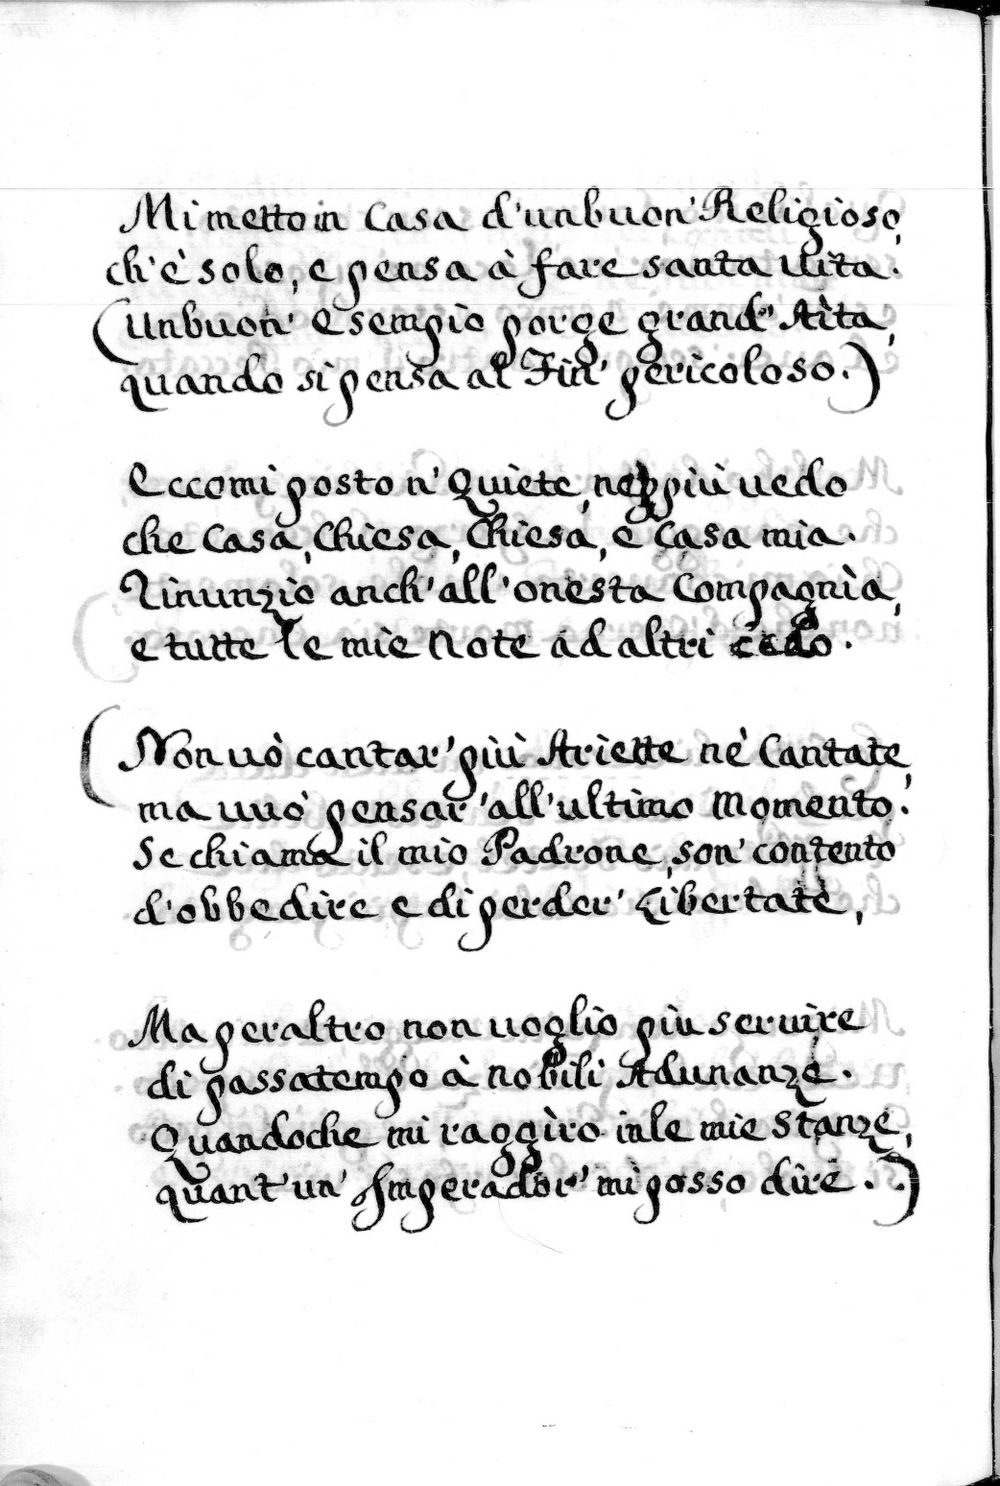 Mi metto in Casa d'un buon' Religioso,
ch'è solo, e pensa à fare santa uita.
(Un buon' Esempio porge grand' Aìta,
quando si pensa al Fin' pericoloso.)
Eccomi posto n' Quiete, ne più uedo
che Casa, Chiesa, Chiesa, e Casa mia.
Rinunzio anch'all'onesta Compagnìa,
e tutte le mie Note ad altri cedo.
(Non uò cantar' più Ariette nè Cantate,
ma uuò pensar'all'ultimo Momento.
Se chiama il mio Padrone, son' contento
d'obbedire e di perder' Libertate,
Ma per altro non uoglio più seruire
di passatempo à nobili Adunanze.
Quandoche mi raggìro in le mie Stanze,
quant'un' Imperador' mi posso dire.)